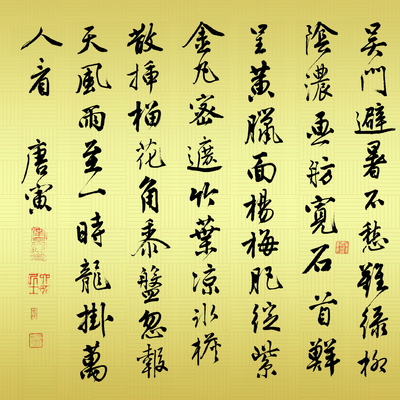 吳門避暑不愁難綠柳
陰濃画舫寬石首鮮
呈黃臘面楊梅肥綻紫
金丸密遮竹葉涼冰檻
散插榴花角黍盤忽報
天風雨至一時龍掛萬
人看
唐寅